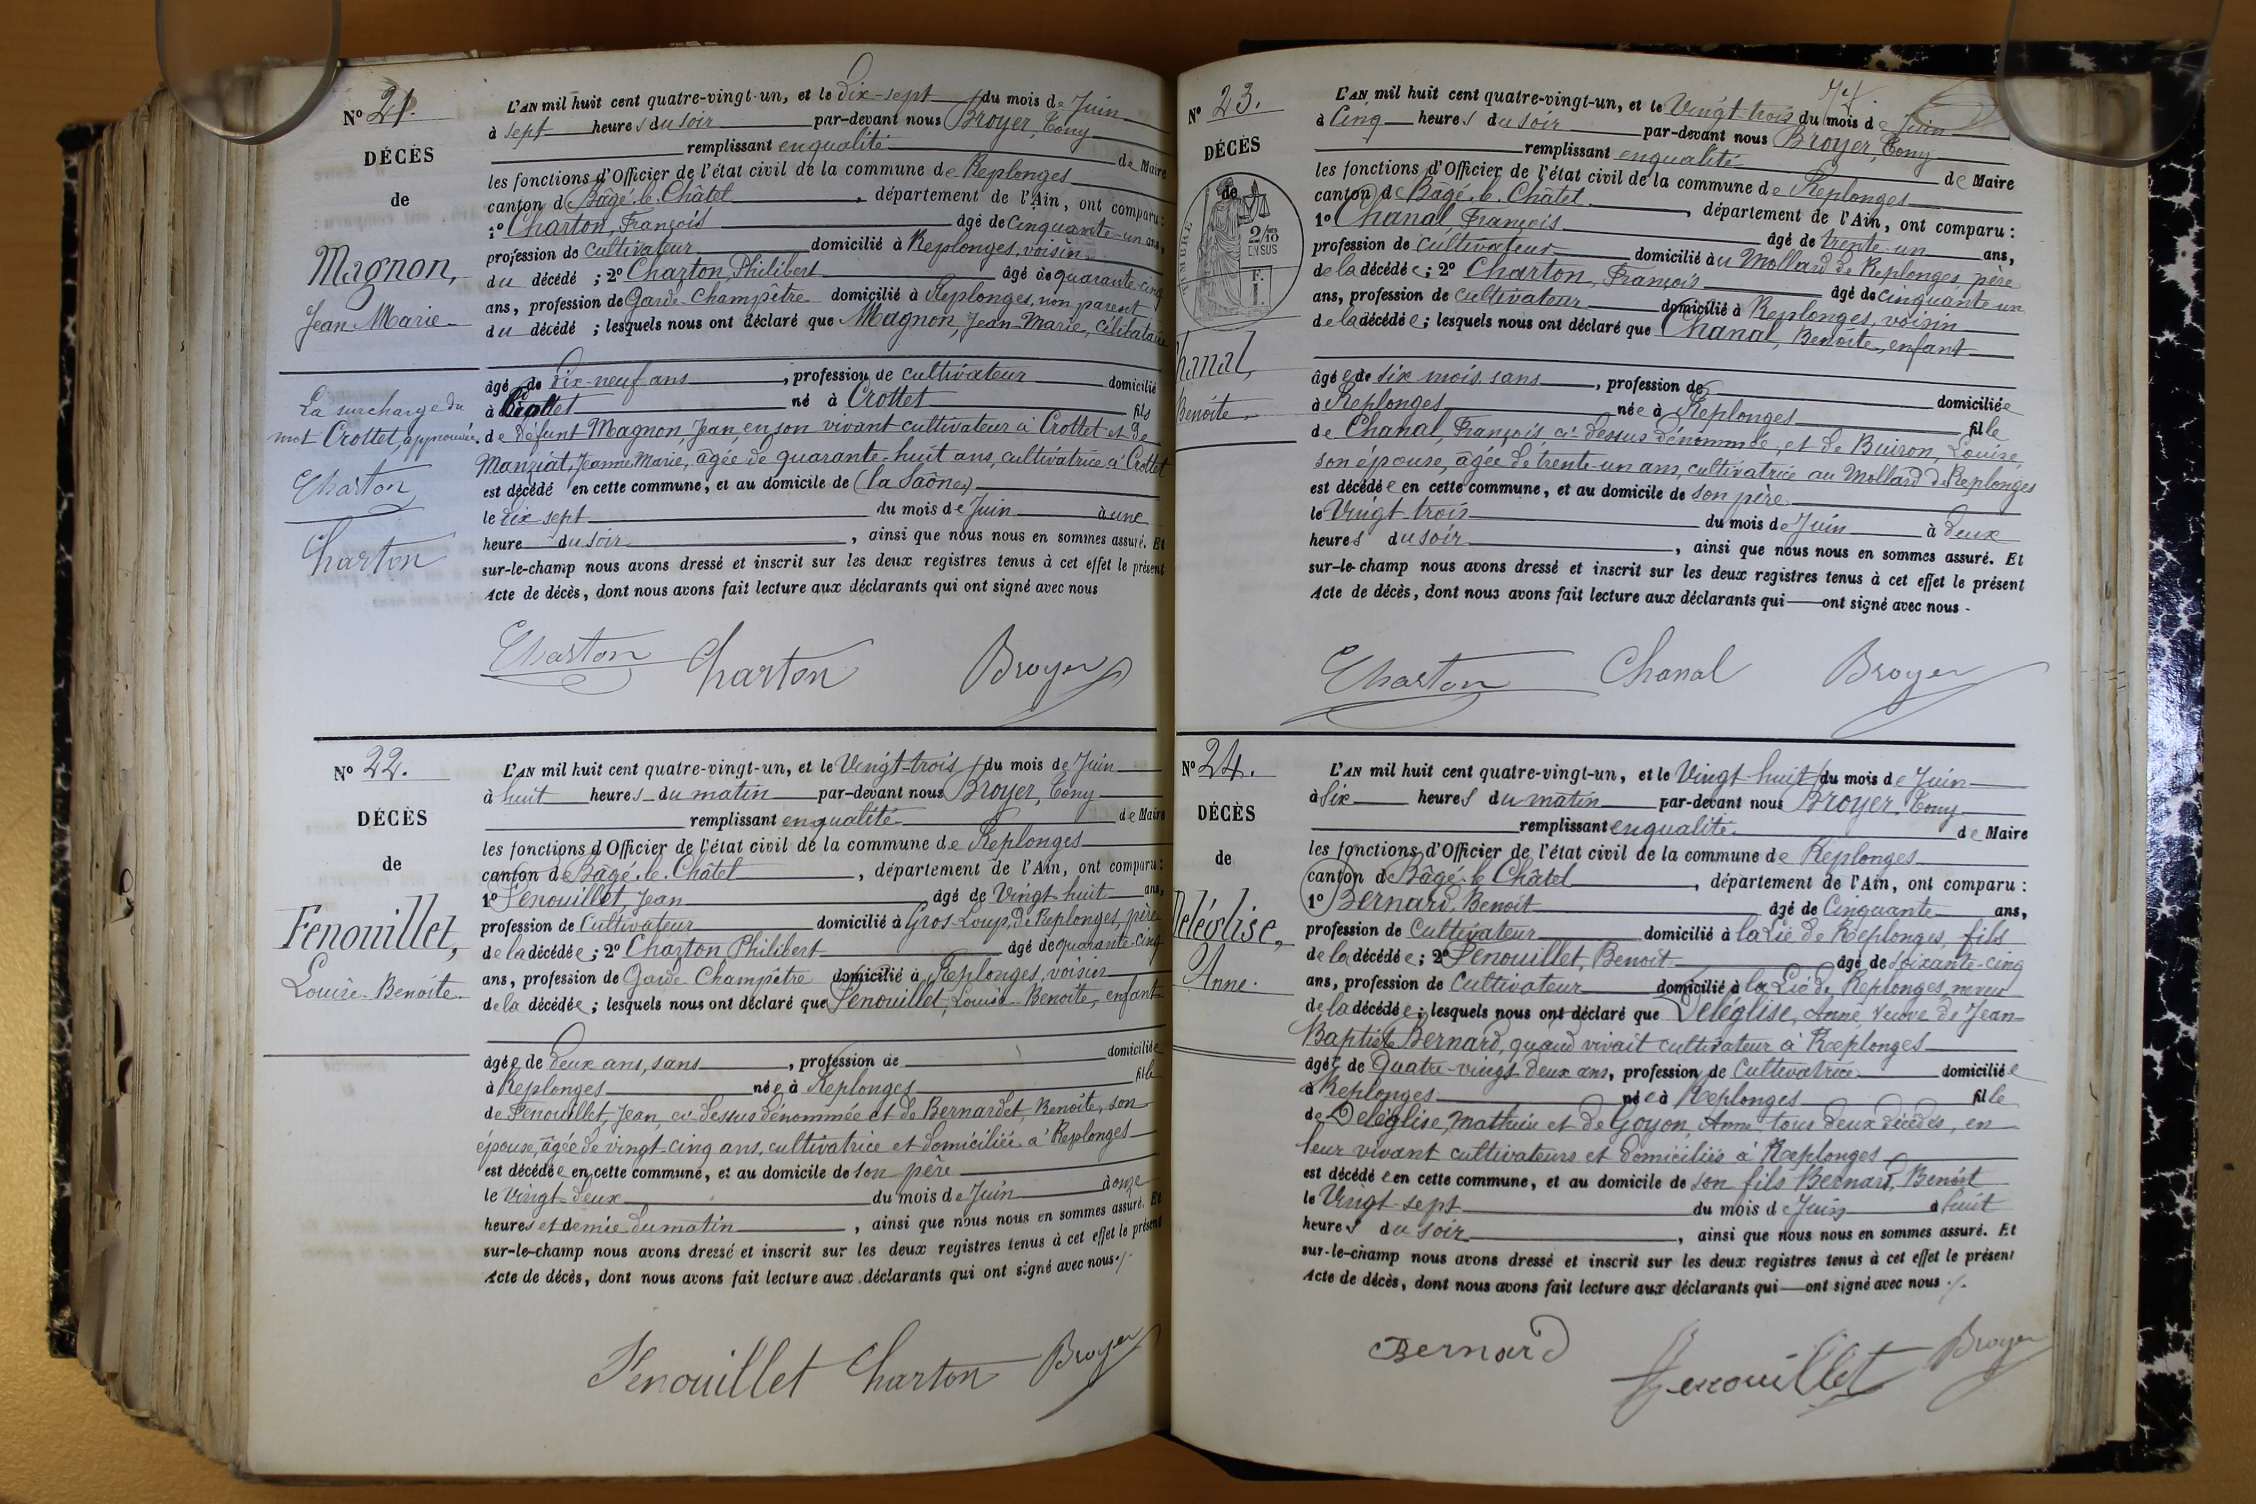 N° 21.
DÉCÈS
de
Magnon,
Jean Marie
La surcharge du
mot Crottet, approuvée.
Charton
Charton
L'AN mil huit cent quatre-vingt-un, et le Dix-sept du mois de Juin
à sept heures du soir par-devant nous Broyer, Tony
remplissant en qualité de Maire
les fonctions d'Officier de l'état civil de la commune de Replonges
canton de Bâgé-le-Châtel, département de l'Ain, ont comparu:
1° Charton, François âgé de Cinquante-un ans,
profession de cultivateur domicilié à Replonges, voisin
du décédé; 2° Charton, Philibert âgé de quarante-cinq
ans, profession de Garde-Champêtre domicilié à Replonges, non parent
du décédé; lesquels nous ont déclaré que Magnon, Jean-Marie, célibataire
âgé de Dix-neuf ans, profession de cultivateur domicilié
à Crottet né à Crottet fils
de défunt Magnon, Jean, en son vivant cultivateur à Crottet et de
Manziat, Jeanne Marie, âgée de quarante-huit ans, cultivatrice à Crottet
est décédé en cette commune, et au domicile de (la Saône)
le dix sept du mois de Juin à une
heure du soir, ainsi que nous nous en sommes assuré. Et
sur-le-champ nous avons dressé et inscrit sur les deux registres tenus à cet effet le présent
Acte de décès, dont nous avons fait lecture aux déclarants qui ont signé avec nous
Charton Charton Broyer
N° 22.
DÉCÈS
de
Fenouillet,
Louise-Benoîte
L'AN mil huit cent quatre-vingt-un, et le Vingt-trois du mois de Juin
à huit heures du matin par-devant nous Broyer, Tony
remplissant en qualité de Maire
les fonctions d'Officier de l'état civil de la commune de Replonges
canton de Bâgé-le-Châtel, département de l'Ain, ont comparu:
1° Fenouillet, Jean âgé de Vingt huit ans,
profession de Cultivateur domicilié à Gros-Loup, de Replonges, père
de la décédée; 2° Charton Philibert âgé de quarante-cinq
ans, profession de Garde Champêtre domicilié à Replonges, voisin
de la décédée; lesquels nous ont déclaré que Fenouillet, Louise-Benoîte, enfant
âgée de Deux ans, sans, profession de domiciliée
à Replonges née à Replonges fille
de Fenouillet, Jean, ci-dessus dénommée et de Bernardet, Benoîte, son
épouse, âgée de vingt-cinq ans, cultivatrice et domiciliée à Replonges
est décédée en cette commune, et au domicile de son père
le Vingt-deux du mois de Juin à onze
heures et demie du matin, ainsi que nous nous en sommes assuré. Et
sur-le-champ nous avons dressé et inscrit sur les deux registres tenus à cet effet le présent
Acte de décès, dont nous avons fait lecture aux déclarants qui ont signé avec nous./.
Fenouillet Charton Broyer
N° 23.
DÉCÈS
de
TIMBRE
2/10 EN SUS
F.
Chanal,
Benoîte
L'AN mil huit cent quatre-vingt-un, et le Vingt-trois du mois de Juin
à Cinq heures du soir par-devant nous Broyer, Tony
remplissant en qualité de Maire
les fonctions d'Officier de l'état civil de la commune de Replonges
canton de Bâgé-le-Châtel, département de l'Ain, ont comparu:
1° Chanal, François âgé de trente-un ans,
profession de cultivateur domicilié au Mollard de Replonges, père
de la décédée; 2° Charton, François âgé de cinquante-un
ans, profession de cultivateur domicilié à Replonges, voisin
de la décédée; lesquels nous ont déclaré que Chanal, Benoîte, enfant
âgée de six mois, sans, profession de domiciliée
à Replonges née à Replonges fille
de Chanal, François, ci-dessus dénommée, et de Buiron, Louise,
son épouse, âgée de trente-un ans, cultivatrice au Mollard de Replonges
est décédée en cette commune, et au domicile de son père
le Vingt-trois du mois de Juin à Deux
heures du soir, ainsi que nous nous en sommes assuré. Et
sur-le-champ nous avons dressé et inscrit sur les deux registres tenus à cet effet le présent
Acte de décès, dont nous avons fait lecture aux déclarants qui ont signé avec nous.
Charton Chanal Broyer
N° 24.
DÉCÈS
de
Deléglise,
Anne.
L'AN mil huit cent quatre-vingt-un, et le Vingt-huit du mois de Juin
à Six heures du matin par-devant nous Broyer, Tony
remplissant en qualité de Maire
les fonctions d'Officier de l'état civil de la commune de Replonges
canton de Bâgé-le-Châtel, département de l'Ain, ont comparu:
1° Bernard, Benoît âgé de Cinquante ans,
profession de Cultivateur domicilié à la Lie de Replonges, fils
de la décédée; 2° Fenouillet, Benoît âgé de soixante-cinq
ans, profession de Cultivateur domicilié à la Lie de Replonges, neveu
de la décédée; lesquels nous ont déclaré que Deléglise, Anne, Veuve de Jean-
Baptiste Bernard, quand vivait cultivateur à Replonges
âgée de Quatre-vingt deux ans, profession de Cultivatrice domiciliée
à Replonges née à Replonges fille
de Deléglise, Mathieu et de Goyon, Anne, tous deux décédés, en
leur vivant cultivateurs et domiciliés à Replonges
est décédée en cette commune, et au domicile de son fils Bernard, Benoît
le Vingt-sept du mois de Juin à huit
heures du soir, ainsi que nous nous en sommes assuré. Et
sur-le-champ nous avons dressé et inscrit sur les deux registres tenus à cet effet le présent
Acte de décès, dont nous avons fait lecture aux déclarants qui ont signé avec nous./.
Bernard Fenouillet Broyer